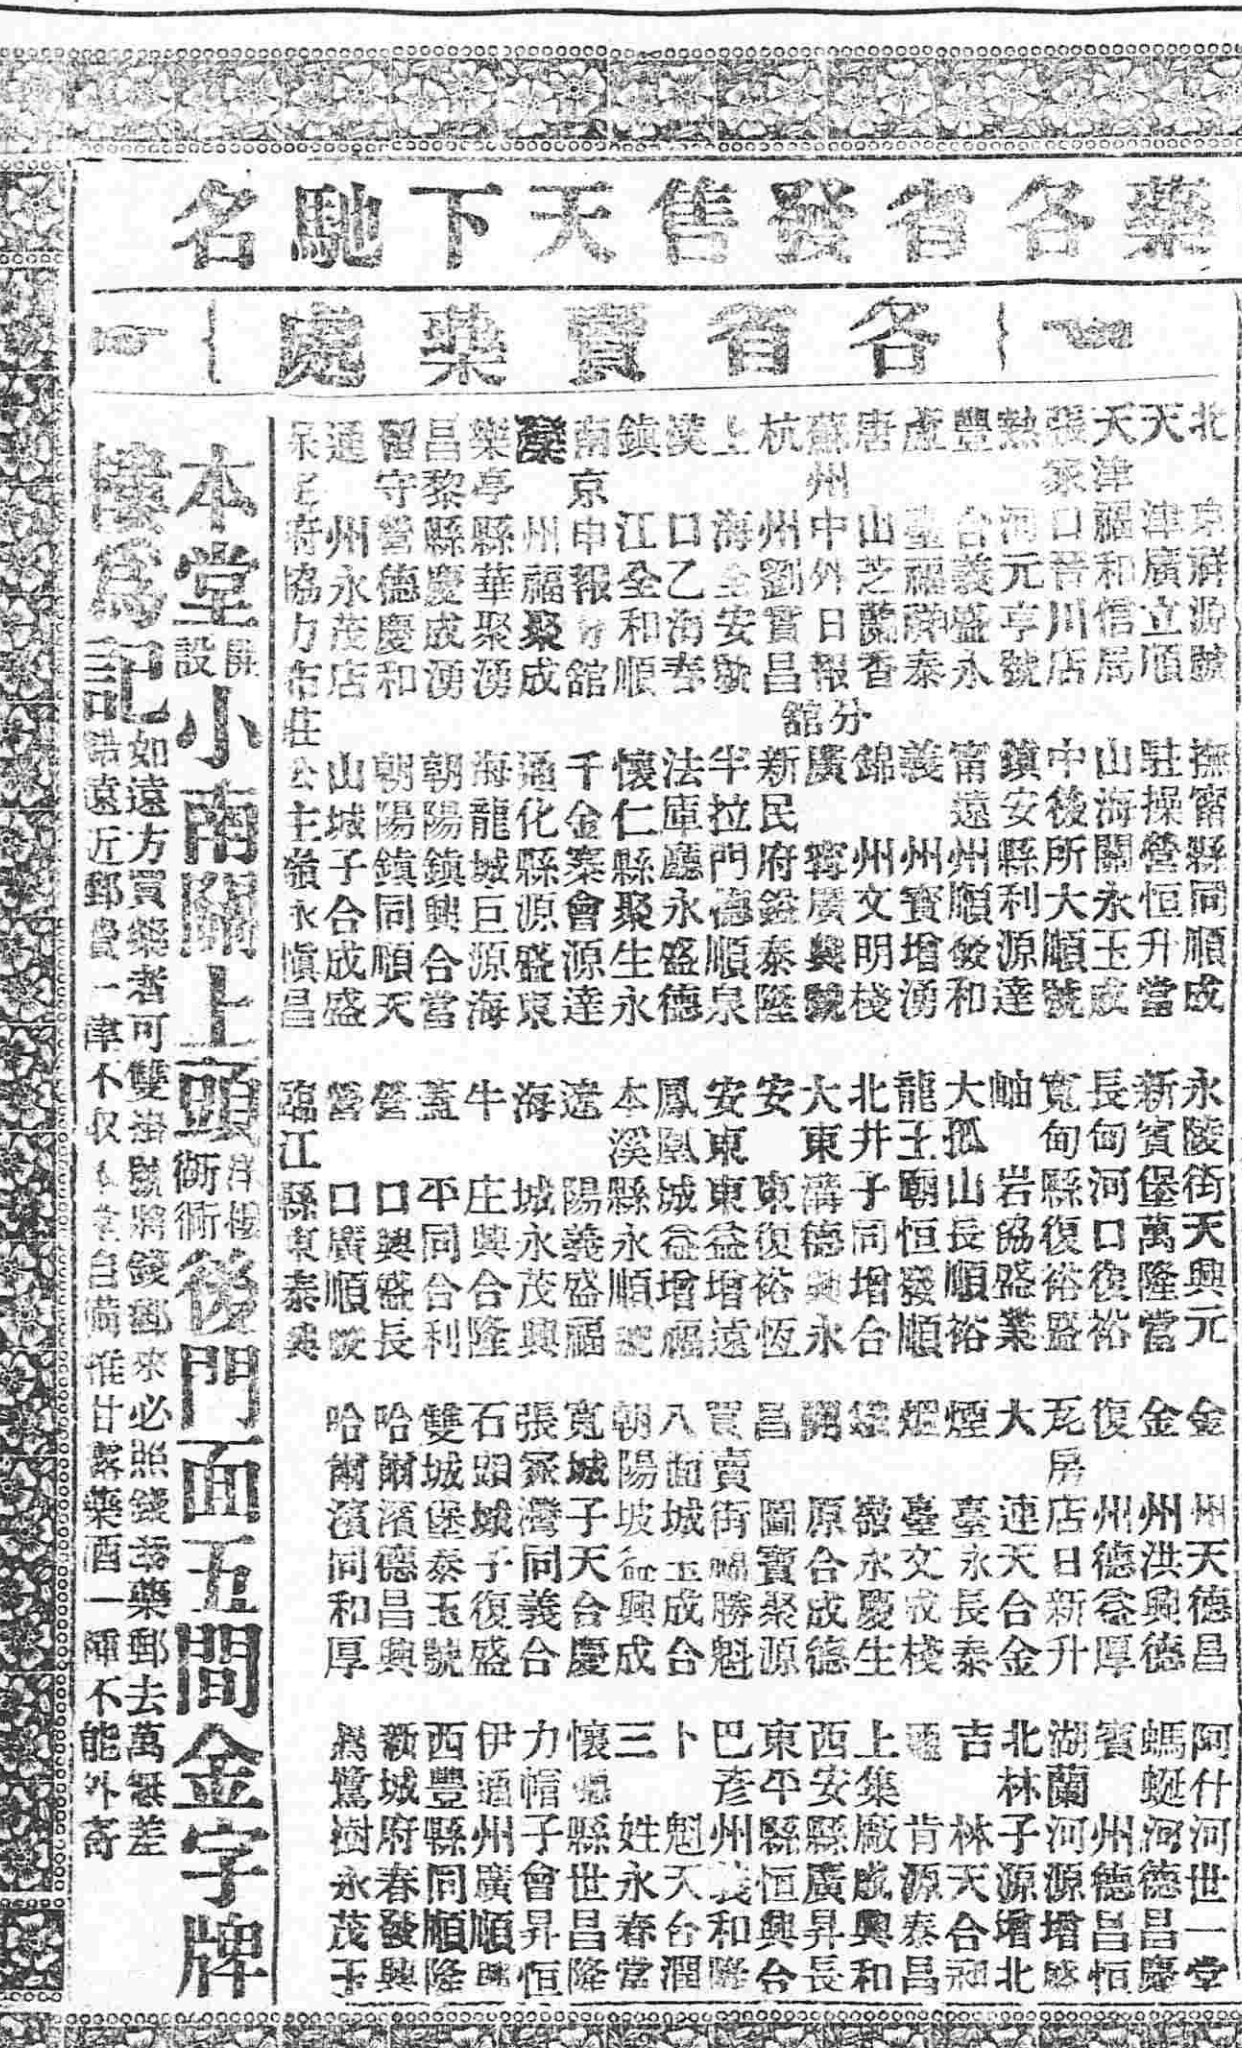 藥各省發售天下馳名
各省賣藥處
北京祥源號
天津廣立順
天津福和信局
張家口晉川店
熱河元亨號
豐台義盛永
蘆臺福泰
唐山芝蘭香
蘇州中外日報分館
杭州劉寶昌
上海全安號
漢口乙海春
鎮江全和順
南京申報分館
灤州福聚成
樂亭縣華聚湧
昌黎縣慶成湧
留守營德慶和
通州永茂店
保定府協力布莊
撫甯縣同順成
駐操營恒升當
山海關永玉成
中後所大順號
鎮安縣利源達
甯遠州順發和
義州寶增湧
錦州文明棧
廣寧廣興號
新民府鎰泰隆
半拉門德順泉
法庫廳永盛德
懷仁縣聚生永
千金寨會源達
通化縣源盛東
海龍城巨源海
朝陽鎮興合當
朝陽鎮同順天
山城子合成盛
公主嶺永慎昌
永陵街天興元
新賓堡萬隆當
長甸河口復裕
寬甸縣復裕盛
岫岩協盛業
大孤山長順裕
龍王廟恒發順
北井子同增合
大東溝德興永
安東復裕恆
安東東益增遠
鳳凰城益增福
本溪縣永順
遼陽義盛福
海城永茂興
牛庄興合隆
蓋平同合利
營口興盛長
營口廣順
臨江縣東泰興
金州天德昌
金州洪興德
復州德益厚
瓦房店日新升
大連天合金
煙臺永長泰
煙臺文成棧
鐵嶺永慶生
開原合成德
昌圖寶聚源
買賣街福勝魁
八面城玉成合
朝陽坡益興成
寬城子天合慶
張家灣同義合
石頭城子復盛
雙城堡泰玉號
哈爾濱德昌興
哈爾濱同和厚
阿什河世一堂
螞蜒河德昌慶
賓州德昌恒
湖蘭河源增
北林子源增北
吉林天合和
肯源泰昌
上集廠成興和
西安縣廣昇長
東平縣恒興合
巴彥州義和隆
卜魁天合潤
三姓永春當
懷縣世昌隆
力帽子會昇恒
伊通州廣順
西豐縣同順隆
新城府春發興
鷺樹永茂玉
本堂開設小南關上頭洋樓衚衕後門面五間金字牌
樓爲記如遠方買藥者可雙掛號將錢郵來必照錢寄藥郵去萬無差
錯遠近郵費一律不收本堂自備惟甘露藥酒一種不能外寄